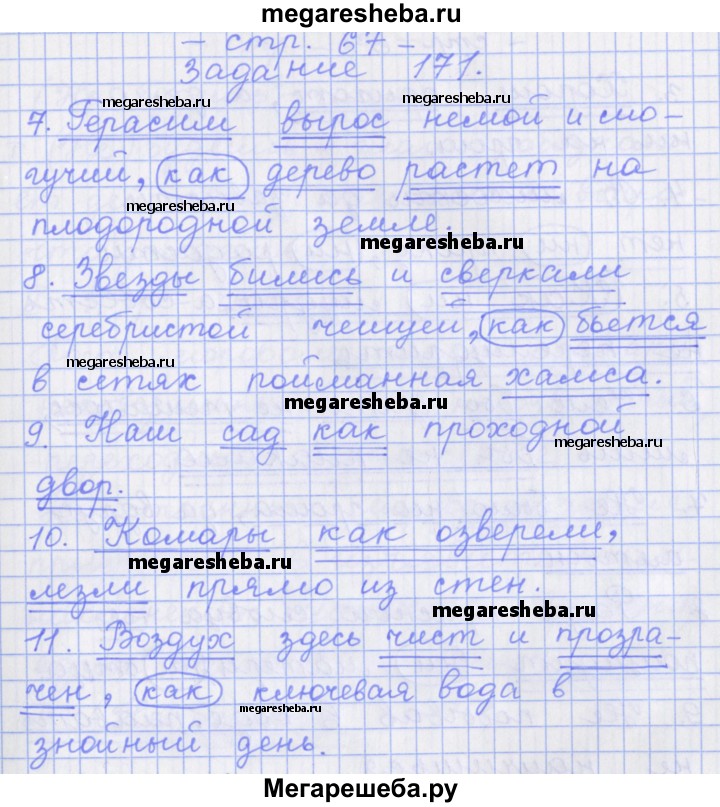 megaresheba.ru
- стр. 67 -
Задание 171.
megaresheba.ru
megaresheba.ru
7. Герасим вырос немой и мо-
гучий, как дерево растет на
megaresheba.ru
плодородной земле.
megaresheba.ru
8. Звезды бились и сверкали
серебристой чешуей, как бьется
megaresheba.ru
в сетях пойманная хамса.
megaresheba.ru
9. Наш сад как проходной
megaresheba.ru
двор.
10. Комары как озверели,
megaresheba.ru
лезли прямо из стен.
megaresheba.ru
11. Воздух здесь чист и прозра-
чен, как ключевая вода в
знойный день.
Мегарешеба.ру